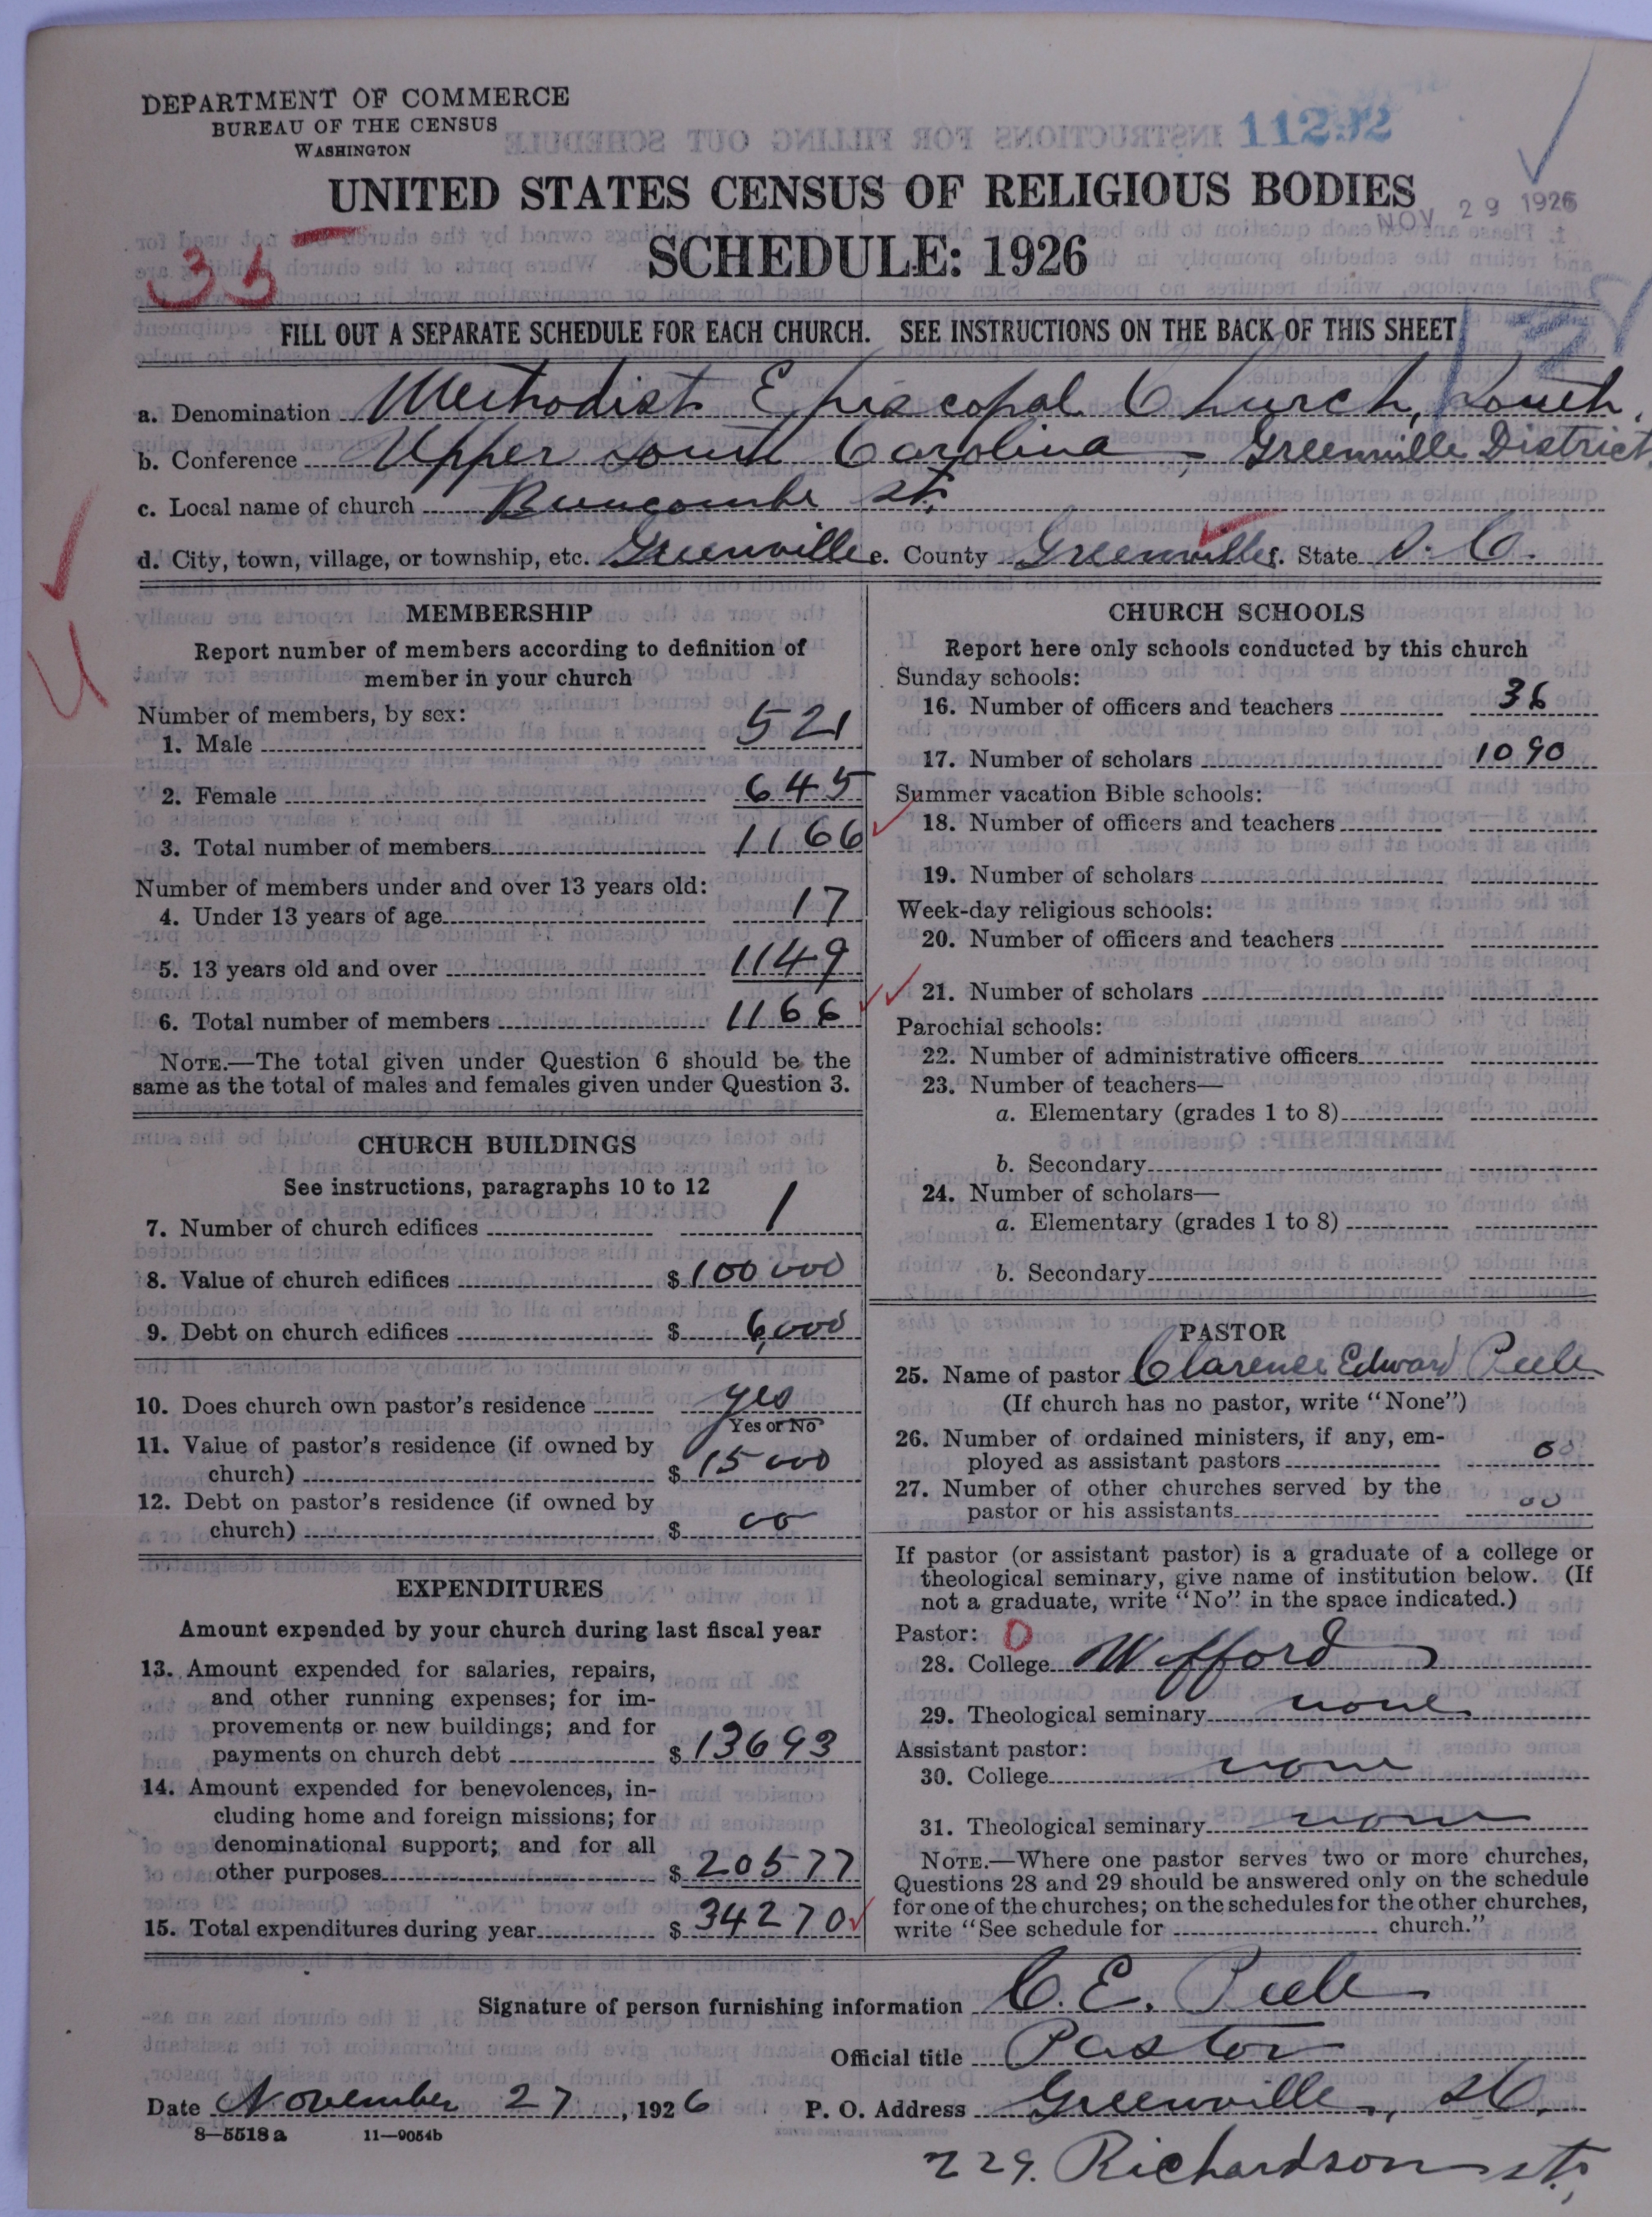 DEPARTMENT OF COMMERCE
BUREAU OF THE CENSUS
WASHINGTON
11292
UNITED STATES CENSUS OF RELIGIOUS BODIES
NOV 29 1926
SCHEDULE: 1926
35
FILL OUT A SEPARATE SCHEDULE FOR EACH CHURCH. SEE INSTRUCTIONS ON THE BACK OF THIS SHEET
a. Denomination Methodist Episcopal Church, South.
b. Conference Upper South Carolina - Greenville District
c. Local name of church Buncombe St.
d. City, town, village, or township, etc. Greenville e. County Greenville f. State S. C.
MEMBERSHIP
Report number of members according to definition of
member in your church
Number of members, by sex:
1. Male 521
2. Female 645
3. Total number of members 1166
Number of members under and over 13 years old:
4. Under 13 years of age 17
5. 13 years old and over 1149
6. Total number of members 1166
NOTE.—The total given under Question 6 should be the
same as the total of males and females given under Question 3.
CHURCH BUILDINGS
See instructions, paragraphs 10 to 12
7. Number of church edifices 1
8. Value of church edifices $ 100 000
9. Debt on church edifices $ 6,000
10. Does church own pastor's residence yes
Yes or No
11. Value of pastor's residence (if owned by
church) $ 15 000
12. Debt on pastor's residence (if owned by
church) $ 00
EXPENDITURES
Amount expended by your church during last fiscal year
13. Amount expended for salaries, repairs,
and other running expenses; for im-
provements or new buildings; and for
payments on church debt $ 13693
14. Amount expended for benevolences, in-
cluding home and foreign missions; for
denominational support; and for all
other purposes $ 20577
15. Total expenditures during year $ 34270
CHURCH SCHOOLS
Report here only schools conducted by this church
Sunday schools:
16. Number of officers and teachers 36
17. Number of scholars 1090
Summer vacation Bible schools:
18. Number of officers and teachers
19. Number of scholars
Week-day religious schools:
20. Number of officers and teachers
21. Number of scholars
Parochial schools:
22. Number of administrative officers
23. Number of teachers—
a. Elementary (grades 1 to 8)
b. Secondary
24. Number of scholars—
a. Elementary (grades 1 to 8)
b. Secondary
PASTOR
25. Name of pastor Clarence Edward Peele
(If church has no pastor, write "None")
26. Number of ordained ministers, if any, em-
ployed as assistant pastors 00
27. Number of other churches served by the
pastor or his assistants 00
If pastor (or assistant pastor) is a graduate of a college or
theological seminary, give name of institution below. (If
not a graduate, write "No" in the space indicated.)
Pastor: 0
28. College Wofford
29. Theological seminary none
Assistant pastor:
30. College none
31. Theological seminary none
NOTE.—Where one pastor serves two or more churches,
Questions 28 and 29 should be answered only on the schedule
for one of the churches; on the schedules for the other churches,
write "See schedule for church."
Signature of person furnishing information C. E. Peele
Official title Pastor
Date November 27, 1926 P. O. Address Greenville, S.C.
8—5518 a 11—9054b
229. Richardson St.,